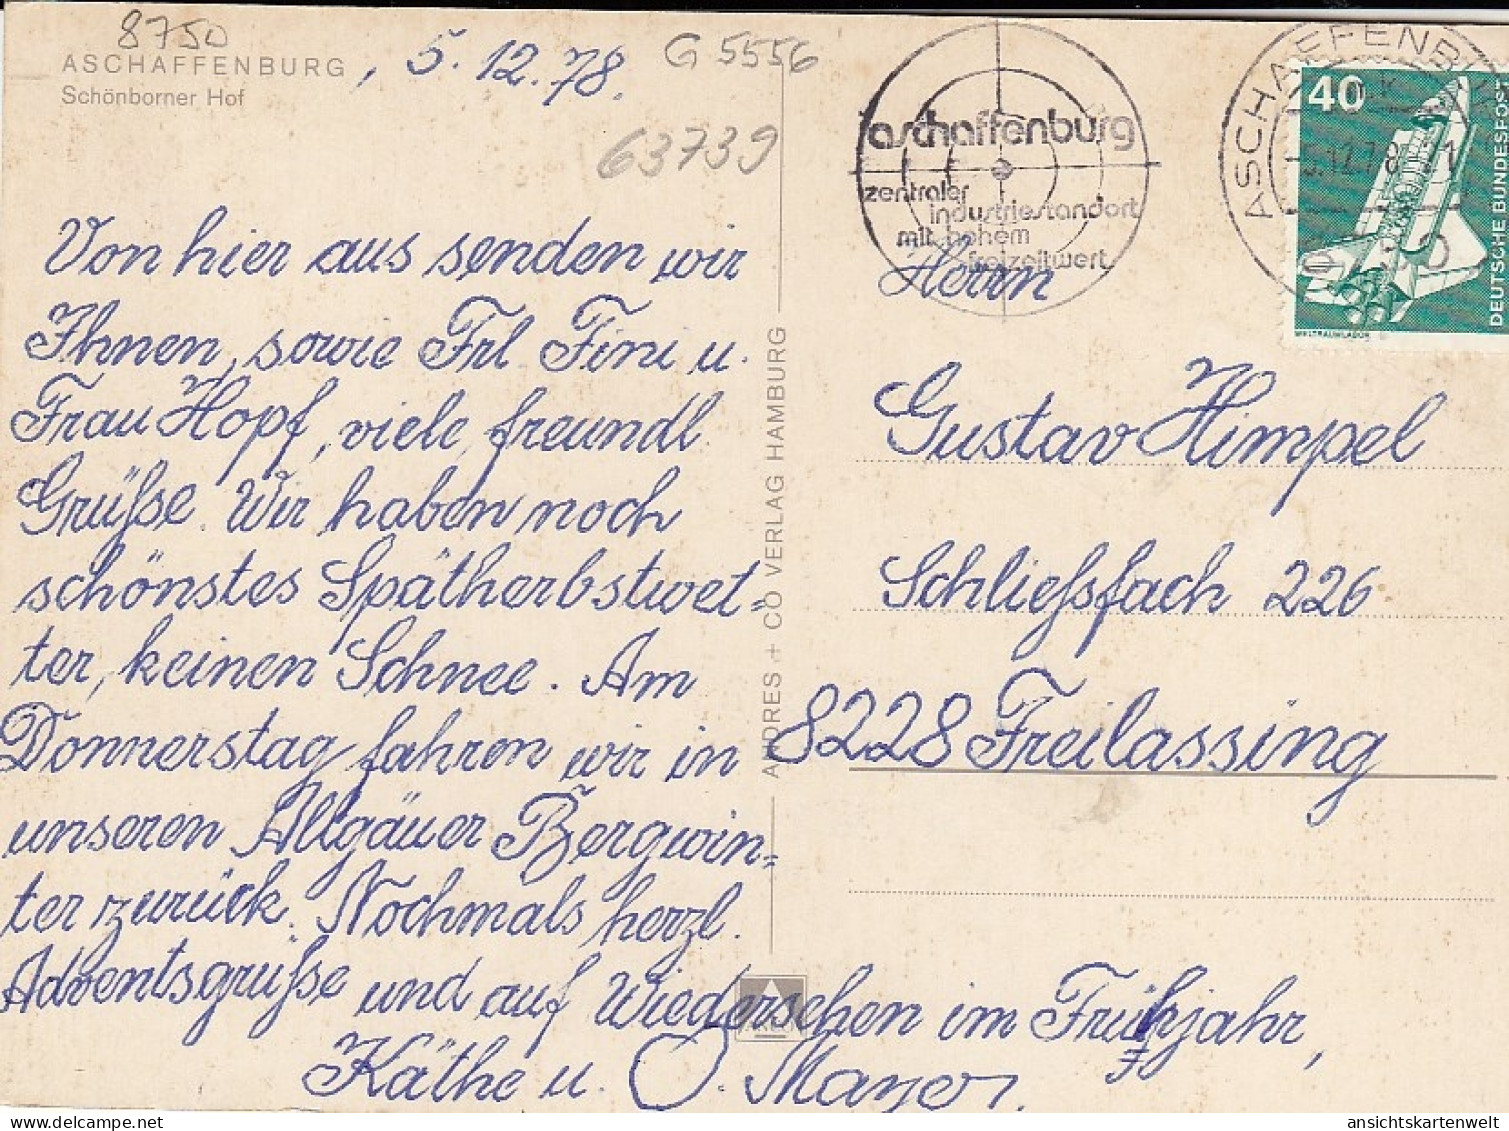 8750
ASCHAFFENBURG, 5.12.78.
Schönborner Hof
G 5556
63739
Von hier aus senden wir
Ihnen, sowie Frl Fini u.
Frau Hopf, viele freundl.
Grüße. Wir haben noch
schönstes Spätherbstwet=
ter, keinen Schnee. Am
Donnerstag fahren wir in
unseren Allgäuer Bergwin=
ter zurück. Nochmals herzl.
Adventsgrüße und auf Wiedersehen im Frühjahr,
Käthe u. O. Mayer.
ANDRES + CO VERLAG HAMBURG
aschaffenburg
zentraler
industriestandort
mit hohem
freizeitwert
ASCHAFFENBURG
5.12.78
8750
40
DEUTSCHE BUNDESPOST
WELTRAUMLABOR
Herrn
Gustav Himpel
Schließfach 226
8228 Freilassing
ansichtskartenwelt